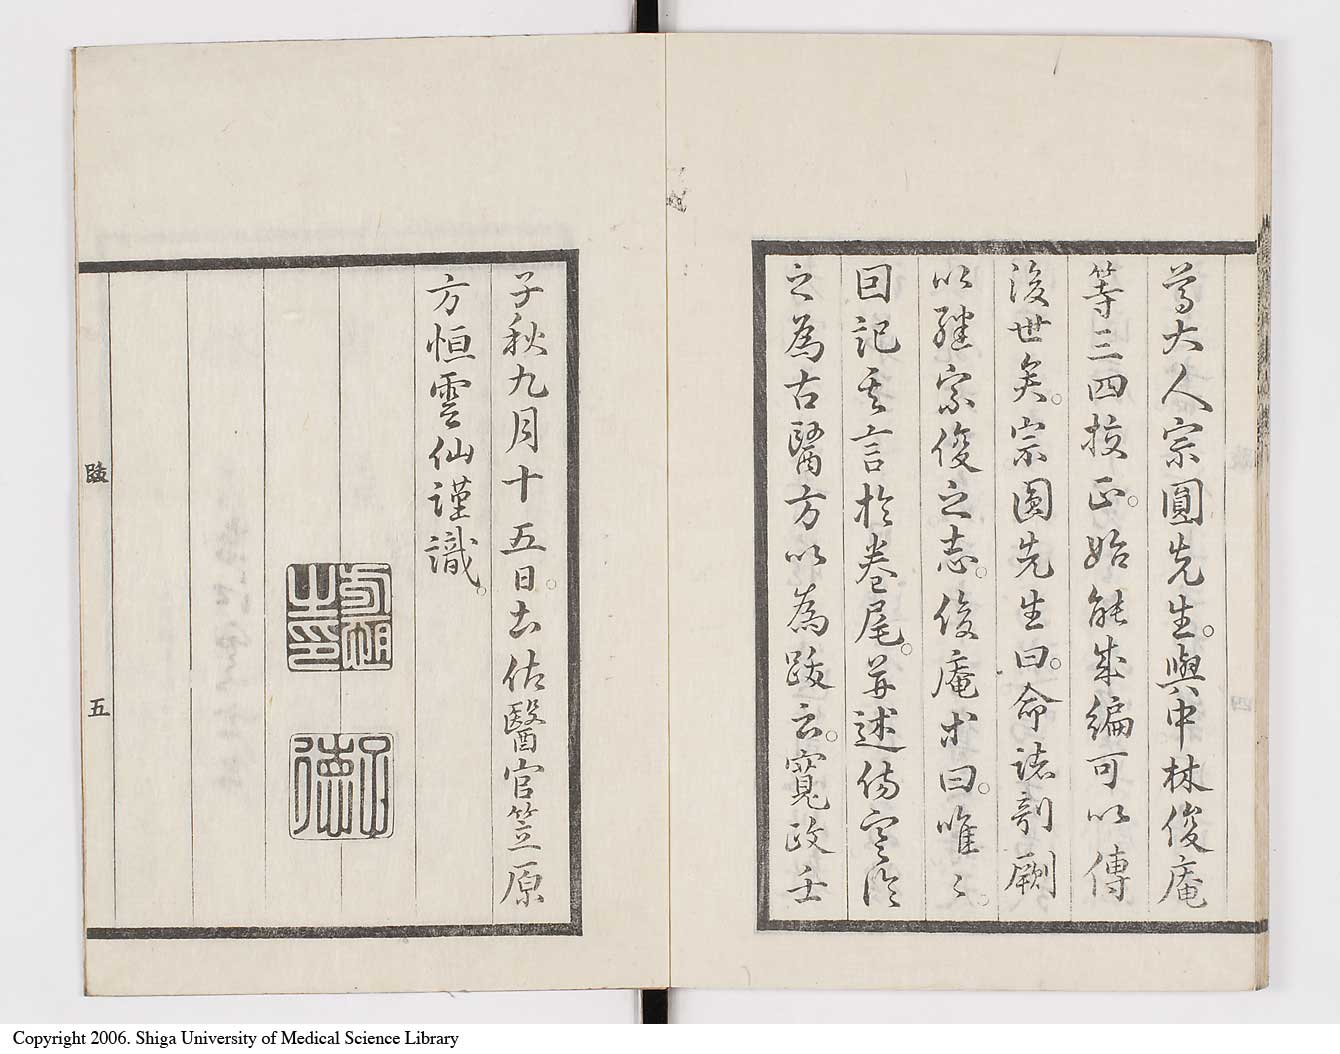 尊大人宗圓先生。與中林俊庵
等三四挍正。始能成編可以傳
後世矣。宗圓先生曰。命諸剞劂
以繼宗俊之志。俊庵求曰。唯〻。
因記其言於卷尾。并述傷寒論
之為古醫方以為跋云。寛政壬
子秋九月十五日。土佐醫官笠原
方恒雲仙謹識。
跋 五
方恒之印
Copyright 2006. Shiga University of Medical Science Library